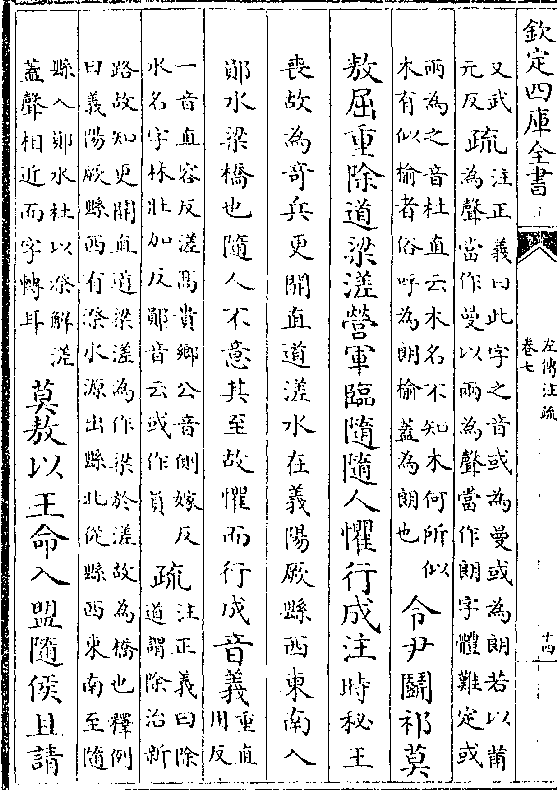 欽定四庫全書
左傳注疏
卷七
十四
又武
元反
疏
注正義曰此字之音或為曼或為朗若以莆
為聲當作曼以兩為聲當作朗字體難定或
兩為之音杜直云木名不知木何所似
木有似榆者俗呼為朗榆蓋為朗也
令尹鬭祁莫
敖屈重除道梁溠營軍臨隨隨人懼行成注時秘王
喪故為奇兵更開直道溠水在義陽厥縣西東南入
鄖水梁橋也隨人不意其至故懼而行成音義
重直
用反
一音直容反溠髙貴鄉公音側嫁反
水名字林壯加反鄖音云或作負
疏
注正義曰除
道謂除治新
路故知更開直道梁溠為作梁於溠故為橋也釋例
曰義陽厥縣西有溠水源出縣北從縣西東南至隨
縣入鄖水杜以溠解溠
蓋聲相近而字轉耳
莫敖以王命入盟隨侯且請